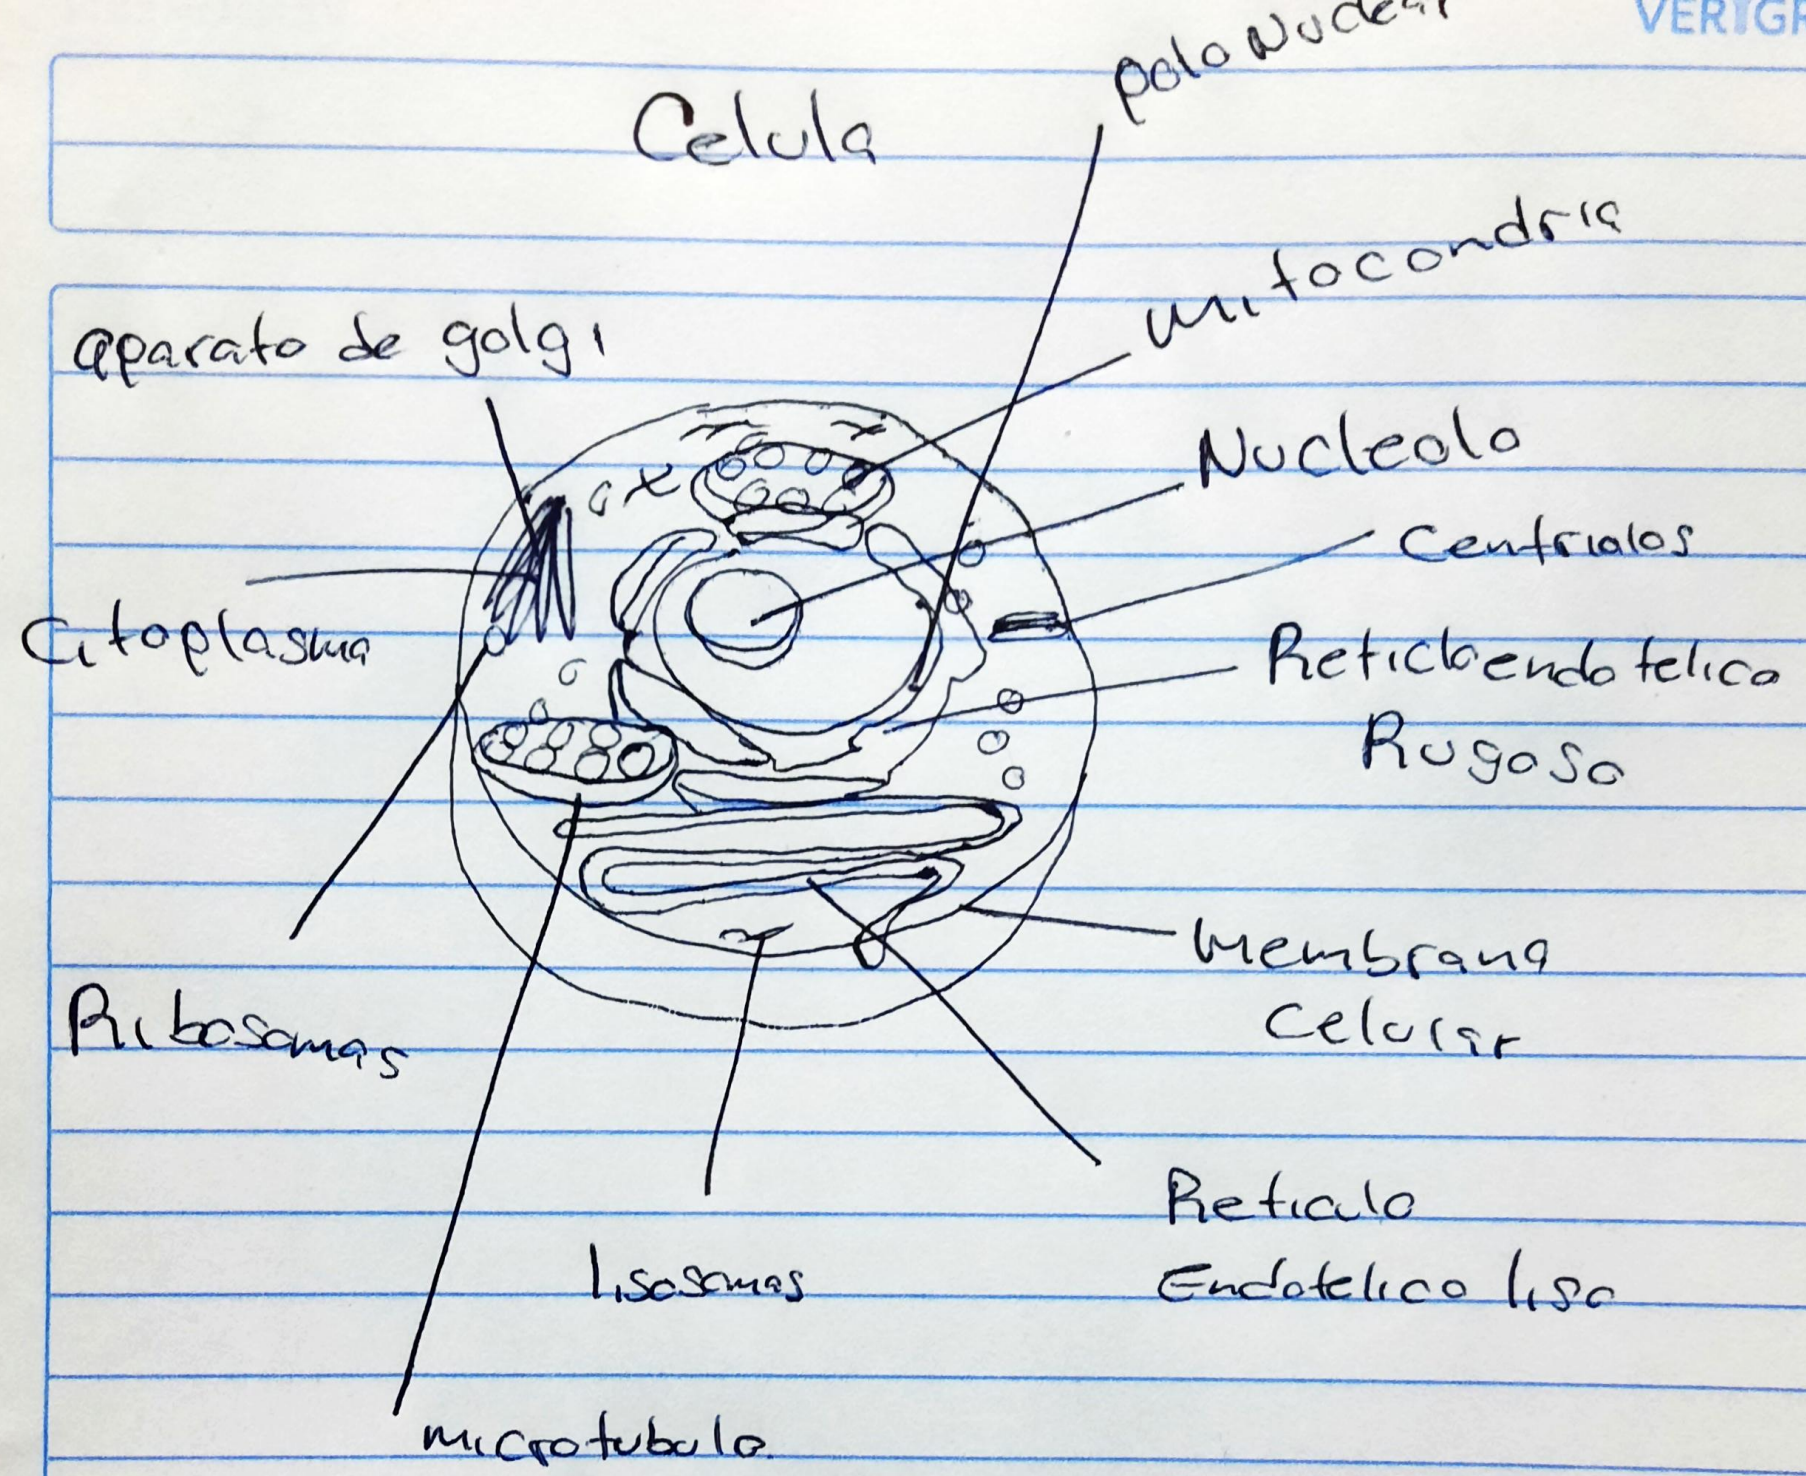 VERTGR
polo Nuclear
Celula
mitocondria
aparato de golgi
Nucleolo
Centriolos
Citoplasma
Reticloendotelico
Rugoso
Membrana
Celular
Ribosomas
Reticulo
Endotelico liso
lisosomas
microtubulo